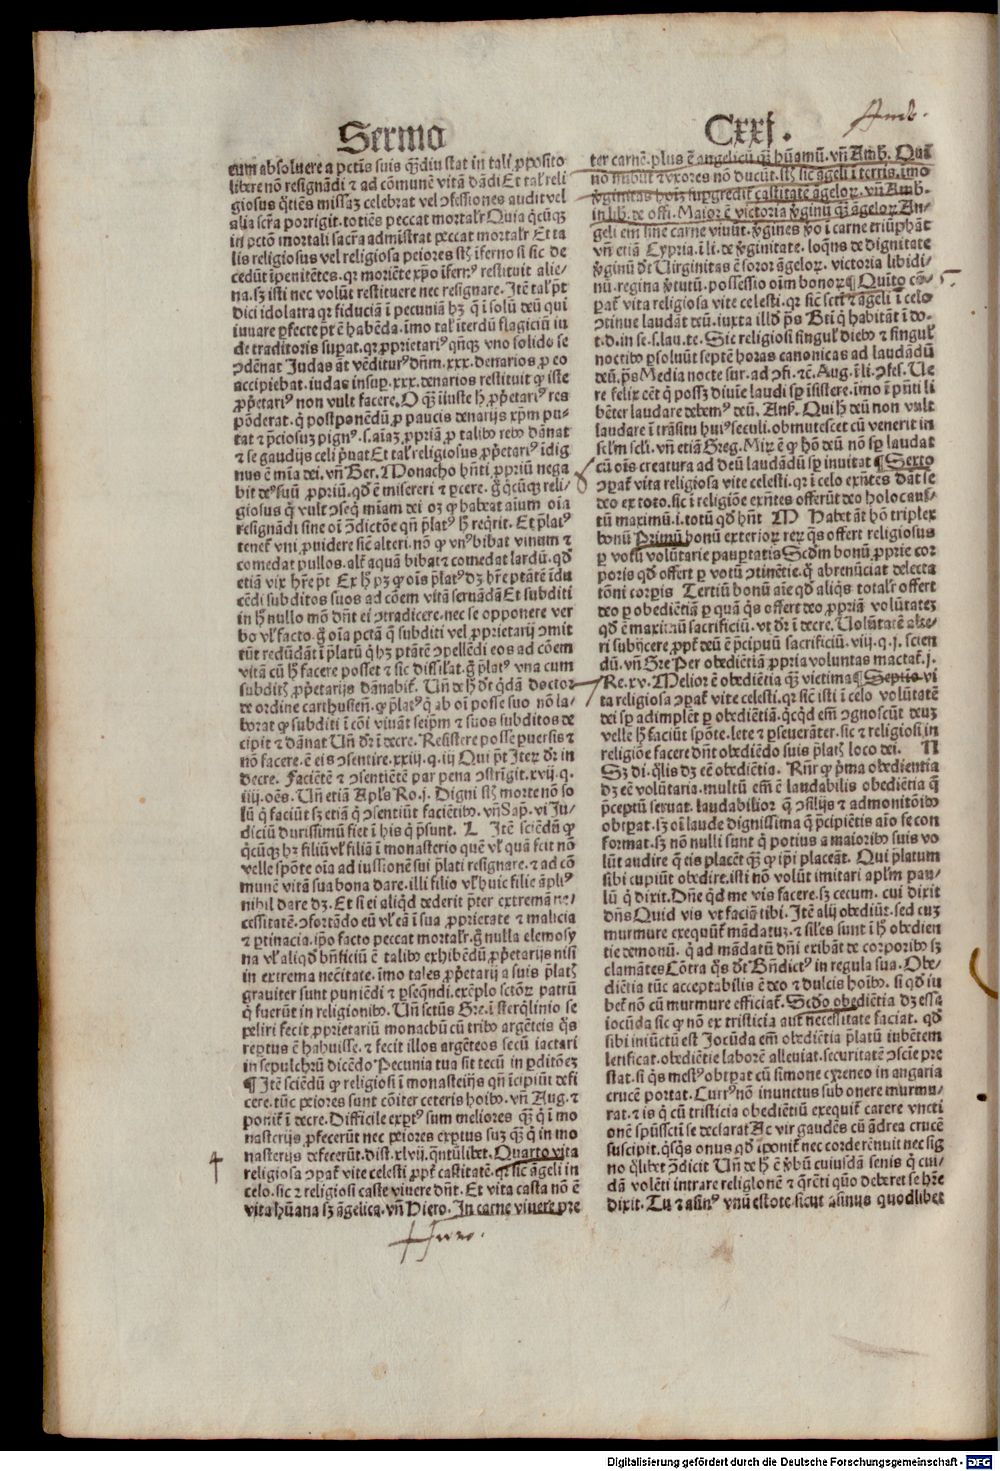 Sermo
Cxxj.
Amb.
eum absoluere a pctīs suis q̄diu stat in tali p̱posito
libere nō resignādi ⁊ ad cōmunē vitā dādi Et tal' reli
giosus q̄tiēs missaz celebrat vel ↄfessiones audit vel
alia scr̄a porrigit. totiēs peccat mortal'r Quia q̄cūqꝫ
in pctō mortali sacr̄a admīstrat peccat mortal'r Et ta
lis religiosus vel religiosa peiores st̄ īferno si sic de
cedūt īpenitētes. qr moriēte xp̄o īfernꝰ restituit alie/
na. sꝫ isti nec volūt restituere nec resignare. Itē tal' p̄t
dici idolatra qr fiduciā ī pecuniā hꝫ q̄ ī solū deū qui
iuuare p̱fecte p̄t ē habēda. imo tal' īterdū flagiciū iu
de traditoris suꝑat. qr p̱prietariꝰ qn̄qꝫ vno solido se
ↄdēnat Judas āt vēditurꝰ dn̄m .xxx. denarios p̱ eo
accipiebat. iudas insuꝑ .xxx. denarios restituit qd iste
p̱p̄etariꝰ non vult facere. O q̄ iiuste h̄ p̱p̄etariꝰ res
pōderat. q̄ postponēdū p̱ paucis denarijs xp̄m pu-
tat ⁊ p̄ciosuz pignꝰ. s. aīaꝫ p̱priā p̱ talibꝰ rebꝰ dānat
⁊ se gaudijs celi p̄uat Et tal' religiosus p̱p̄etariꝰ īdig
nus ē mīa dei. vn̄ Ber. Monacho hn̄ti p̱priū nega
bit deꝰ suū p̱priū. qd̄ ē misereri ⁊ ꝑcere. g̊ q̄cūqꝫ reli-
giosus q̄ vult ↄseq̄ mīam dei oꝫ qd habeat aīum oīa
resignādi sine oī ↄdictōe qn̄ p̄latꝰ h̄ reqͥrit. Et p̄latꝰ
tenet' vni ꝓuidere sicut alteri. nō qd vnꝰ bibat vinum ⁊
comedat pullos. alt' aquā bibat ⁊ comedat lardū. qd̄
etiā vix hr̄e p̄t Ex h̄ pꝫ qd oīs p̄latꝰ dꝫ hr̄e ptātē īdu
cēdi subditos suos ad cōem vitā seruādā Et subditi
in h̄ nullo mō dn̄t ei ↄtradicere. nec se opponere ver
bo vl' facto. g̊ oīa pctā q̄ subditi vel p̱prietarij ↄmit
tūt redūdāt ī p̄latū q̄ hꝫ ptātē ↄpellēdi eos ad cōem
vitā cū h̄ facere posset ⁊ sic dissilat. g̊ p̄latꝰ vna cum
subditꝭ p̱p̄etarijs dānabit'. Un̄ de h̄ dt qͥdā doctor
de ordine carthusien̄. qd p̄latꝰ q̄ ab oī posse suo nō la-
borat qd subditi ī cōi viuāt seip̄m ⁊ suos subditos de
cipit ⁊ dānat Un̄ dr̄ ī decre. Resistere posse ꝑuersis ⁊
nō facere. ē eis ↄsentire .xxiij. q. iij Qui p̄t Iteꝝ dr̄ in
decre. Faciētē ⁊ ↄsentiētē par pena ↄstrīgit .xvij. q.
iiij. oēs. Un̄ etiā Apl's Ro. j. Digni st̄ morte nō so
lū q̄ faciūt sꝫ etiā q̄ ↄsentiūt faciētibꝰ. vn̄ Sap̄. vi Ju-
diciū durissimū fiet ī his q̄ p̄sunt. L Itē sciēdū qd
q̄cūqꝫ hꝫ filiū vl' filiā ī monasterio quē vl' quā scit nō
velle spōte oīa ad iussionē sui p̄lati resignare. ⁊ ad cō
munē vitā sua bona dare. illi filio vl' huic filie āpliꝰ
nihil dare dꝫ. Et si ei aliqͥd dederit p̄ter extremā ne-
cessitatē. ↄfortādo eū vl' eā ī sua p̱prietate ⁊ malicia
⁊ ꝑtinacia. ip̄o facto peccat mortal'r. g̊ nulla elemosy
na vl' aliqd̄ bn̄ficiū ē talibꝰ exhibēdū p̱p̄etarijs nisi
in extrema necītate. imo tales p̱p̄etarij a suis p̄latꝭ
grauiter sunt puniēdi ⁊ ꝑseqͥndi. exēplo sctōꝝ patrū
q̄ fuerūt in religionibꝰ. Un̄ sctūs Gre. ī sterqͥlinio se
peliri fecit p̱prietariū monachū cū tribꝰ argēteis q̄s
reꝑtus ē habuisse. ⁊ fecit illos argēteos secū iactari
in sepulchrū dicēdo Pecunia tua sit tecū in ꝑditōeꝫ
¶ Itē sciēdū qd religiosi ī monasteijs qn̄ īcipiūt defi
cere. tūc peiores sunt cōiter ceteris hoībꝰ. vn̄ Aug. ⁊
ponit' ī decre. Difficile exptꝰ sum meliores q̄ q̄ ī mo
nasterijs p̱fecerūt nec peiores exptus suꝫ q̄ q̄ in mo
nasterijs defecerūt. dist. xlvij. qn̄tūlibet. Quarto vita
religiosa ↄꝑat' vite celesti p̱pt' castitatē. qr sic āgeli in
celo. sic ⁊ religiosi caste viuere dn̄t. Et vita casta nō ē
vita hūana sꝫ āgelica. vn̄ Hiero. In carne viuere pre
ter carnē. plus ē angelicū q̄ hūamū. vn̄ Amb. Qui
nō nubūt ⁊ vxores nō ducūt. st̄ sic āgeli ī terris. imo
v̄ginitas hoīs suꝑgredit' castitatē āgeloꝝ. vn̄ Amb.
in lib. de offi. Maior ē victoria v̄ginū q̄ āgeloꝝ An-
geli em̄ sine carne viuūt. v̄gines v̄o ī carne triūphāt
vn̄ etiā Cypria. ī li. de v̄ginitate. loqn̄s de dignitate
v̄ginū dt Uirginitas ē soror āgeloꝝ. victoria libidi/
nū. regina v̄tutū. possessio oīm bonoꝝ ¶ Quīto cō-
ꝑat' vita religiosa vite celesti. qr sic scti ⁊ āgeli ī celo
ↄtinue laudāt deū. iuxta illd̄ ps̄ Bti q̄ habitāt ī do-
t. d. in se. s. lau. te. Sic religiosi singul' diebꝰ ⁊ singul'
noctibꝰ ꝑsoluūt septē horas canonicas ad laudādū
deū. ps̄ Media nocte sur. ad ↄfi. ⁊c̄. Aug. ī li. ↄfes. Ue
re felix eēt q̄ possꝫ diuīe laudi sꝑ īsistere. imo ī p̄nti li
bēter laudare debemꝰ deū. Ans̄. Qui h̄ deū non vult
laudare ī trāsitu huiꝰ seculi. obmutescet cū venerit in
sclm̄ scli. vn̄ etiā Greg. Miꝝ ē qd hō deū nō sꝑ laudat
cū oīs creatura ad deū laudādū sꝑ inuitat ¶ Sexto
ↄꝑat' vita religiosa vite celesti. qr ī celo exn̄tes dāt se
deo ex toto. sic ī religiōe exn̄tes offerūt deo holocauf-
tū maximū .i. totū qd̄ hn̄t M Habet āt hō triplex
bonū Primū bonū exterioꝝ reꝝ q̄s offert religiosus
ꝑ votū volūtarie pauꝑtatis Scd̄m bonū p̱prie cor
poris qd̄ offert ꝑ votū ↄtinētie. q̄ abrenūciat delecta
tōni corꝑis Tertiū bonū aīe qd̄ aliq̄s total'r offert
deo ꝑ obediētiā ꝑ quā q̄s offert deo p̱priā volūtatez
qd̄ ē maximū sacrificiū. vt dr̄ ī decre. Uolūtatē alte/
ri subijcere p̱pt' deū ē p̄cipuū sacrificiū. viij. q. j. scien
dū. vn̄ Gre Per obediētiā p̱pria voluntas mactat'. j.
Re. xv. Melior ē obediētia q̄ victima ¶ Septīo vi
ta religiosa ↄꝑat' vite celesti. qr sic isti ī celo volūtatē
dei sꝑ adimplēt ꝑ obediētiā. qͥcqͥd em̄ ↄgnoscūt deuz
velle h̄ faciūt spōte. lete ⁊ ꝑseuerāter. sic ⁊ religiosi in
religiōe facere dn̄t obediēdo suis p̄latꝭ loco dei. N
Sꝫ di. q̄lis dꝫ eē obediētia. Rn̄r qd p̄ma obedientia
dꝫ eē volūtaria. multū em̄ ē laudabilis obediētia q̄
p̄ceptū seruat. laudabilior q̄ ↄsilijs ⁊ admonitōibꝰ
obtꝑat. sꝫ oī laude dignissima q̄ p̄cipiētis aīo se con
format. sꝫ nō nulli sunt q̄ potius a maioribꝰ suis vo
lūt audire q̄ eis placēt q̄ qd ip̄i placeāt. Qui p̄latum
sibi cupiūt obedire. isti nō volūt imitari apl'm pau/
lū q̄ dixit. Dn̄e qͥd me vis facere. sꝫ cecum. cui dixit
dn̄s Quid vis vt faciā tibi. Itē alij obediūt. sed cuz
murmure exequūt' mādatuz. ⁊ sil'es sunt ī h̄ obedien
tie demonū. q̄ ad mādatū dn̄i exibāt de corporibꝰ sꝫ
clamātes Cōtra q̄s dt Bn̄dictꝰ in regula sua. Obe/
diētia tūc acceptabilis ē deo ⁊ dulcis hoībꝰ. si qd̄ iu
bet' nō cū murmure efficiat'. Scd̄o obediētia dꝫ esse
iocūda sic qd nō ex tristicia aut necessitate faciat. qd̄
sibi iniūctū est Jocūda em̄ obediētia p̄latū iubētem
letificat. obediētie laborē alleuiat. securitatē ↄscīe pre
stat. si q̄s mestꝰ obtꝑat cū simone cyreneo in angaria
crucē portat. Currꝰ nō inunctus sub onere murmu/
rat. ⁊ is q̄ cū tristicia obediētiū exequit' carere vncti
onē spūssctī se declarat Ac vir gaudēs cū ādrea crucē
suscipit. qͥsqͥs onus qd̄ īponit' nec corde rēnuit nec sig
no q̄libet ↄdicit Un̄ de h̄ ē v̄bū cuiusdā senis q̄ cui/
dā volēti intrare religionē ⁊ q̄rēti quō deberet se hr̄e
dixit. Tu ⁊ asinꝰ vnū estote. sicut asinus quodlibet
Hiero.
Digitalisierung gefördert durch die Deutsche Forschungsgemeinschaft - DFG